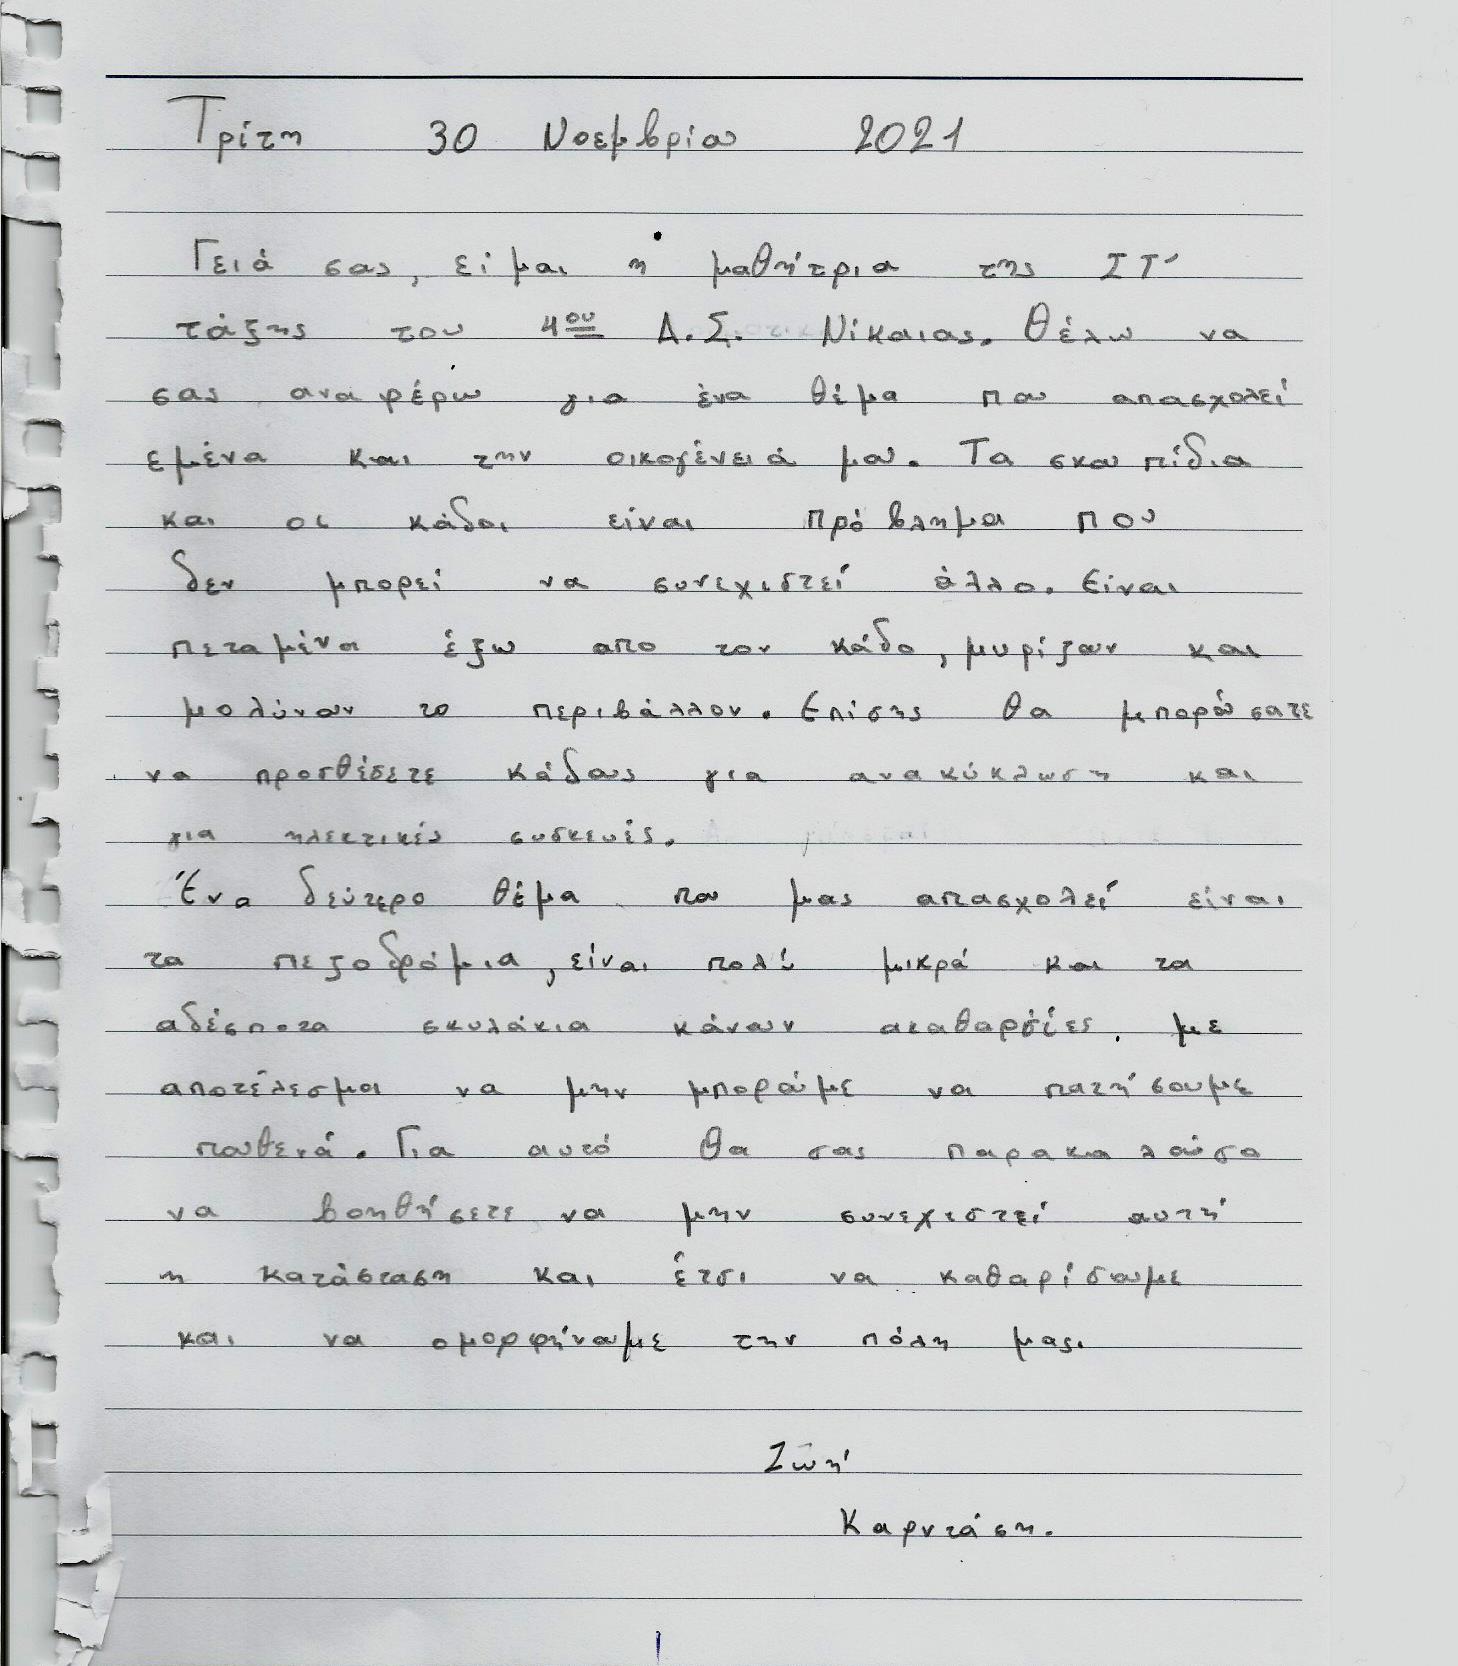 Τρίτη 30 Νοεμβρίου 2021
Γειά σας, είμαι η μαθήτρια της ΣΤ'
τάξης του 4ου Δ.Σ. Νίκαιας. Θέλω να
σας αναφέρω για ένα θέμα που απασχολεί
εμένα και την οικογένειά μου. Τα σκουπίδια
και οι κάδοι είναι πρόβλημα που
δεν μπορεί να συνεχιστεί άλλο. Είναι
πεταμένα έξω απο τον κάδο, μυρίζουν και
μολύνουν το περιβάλλον. Επίσης θα μπορούσατε
να προσθέσετε κάδους για ανακύκλωση και
για ηλεκτικές συσκευές.
Ένα δεύτερο θέμα που μας απασχολεί είναι
τα πεζοδρόμια, είναι πολύ μικρά και τα
αδέσποτα σκυλάκια κάνουν ακαθαρσίες, με
αποτέλεσμα να μην μπορούμε να πατήσουμε
πουθενά. Για αυτό θα σας παρακαλούσα
να βοηθήσετε να μην συνεχιστεί αυτή
η κατάσταση και έτσι να καθαρίσουμε
και να ομορφήνουμε την πόλη μας.
Ζωή
Καρντάση.